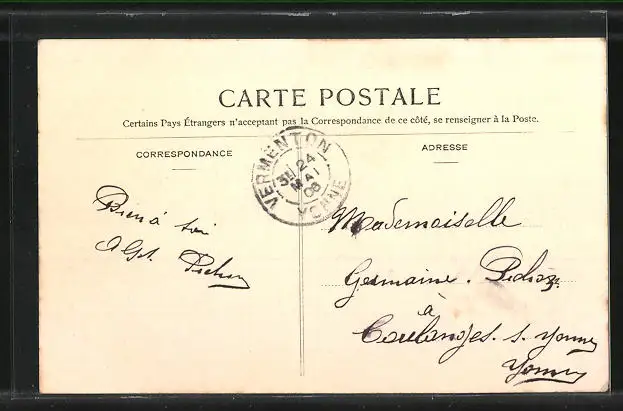 CARTE POSTALE
Certains Pays Étrangers n'acceptant pas la Correspondance de ce côté, se renseigner à la Poste.
CORRESPONDANCE
ADRESSE
VERMENTON
3E 24
MAI
06
YONNE
Bien à toi
Mademoiselle
Germaine
à
Coulanges. s. Yonne
Yonne